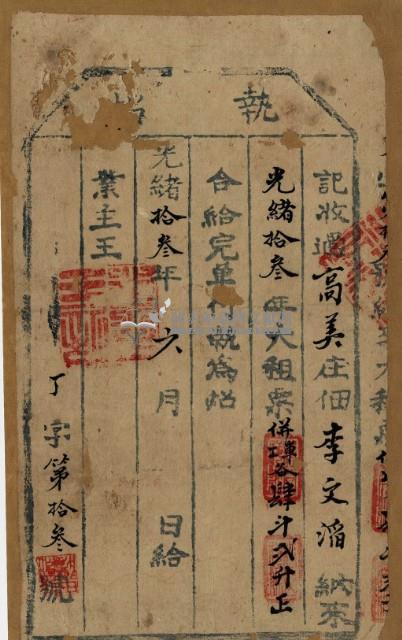 執照
記收過高美庄佃李文滔納來
光緒拾叁年大租粟併車工谷肆斗弍升正
合給完單付執為炤
光緒拾叁年六月 日給
業主王
丁字第拾叁號